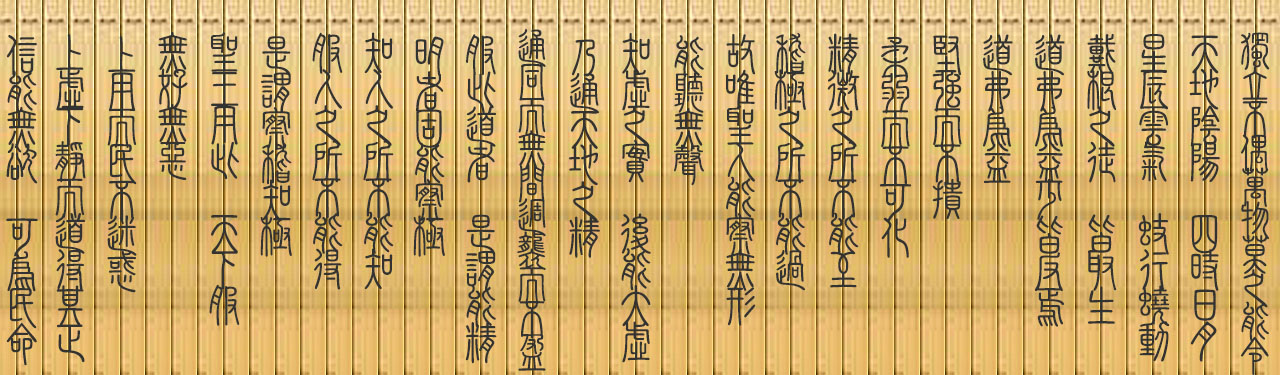 獨立不偶萬物莫之能令
天地陰陽 四時日月
星辰雲氣 蚑行蟯動
戴根之徒 皆取生
道弗爲益少皆反焉
道弗爲益
堅強而不撌
柔弱而不可化
精微之所不能至
稽極之所不能過
故唯聖人能察無形
能聽無聲
知虛之實 後能大虛
乃通天地之精
通同而無間週襲而不盈
服此道者 是謂能精
明者固能察極
知人之所不能知
服人之所不能得
是謂察稽知極
聖王用此 天下服
無好無惡
上用而民不迷惑
上虛下靜而道得其正
信能無欲 可爲民命